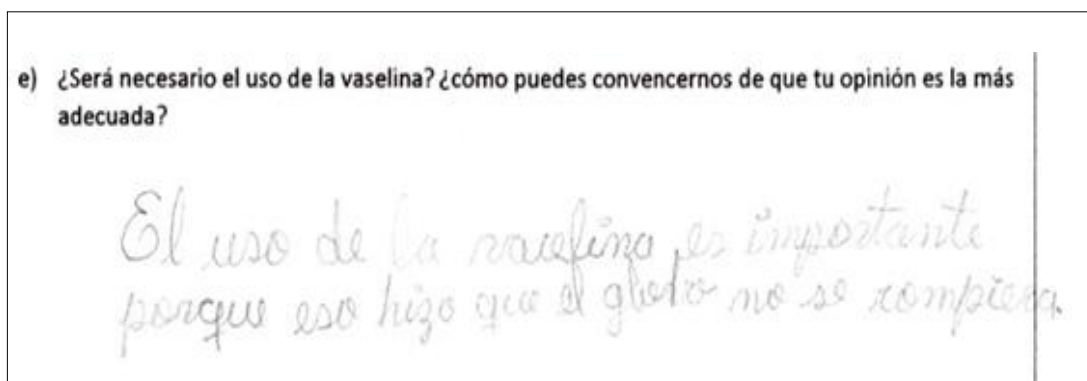 e) ¿Será necesario el uso de la vaselina? ¿cómo puedes convencernos de que tu opinión es la más
adecuada?
El uso de la vacelina es importante
porque eso hizo que el globo no se rompiera.